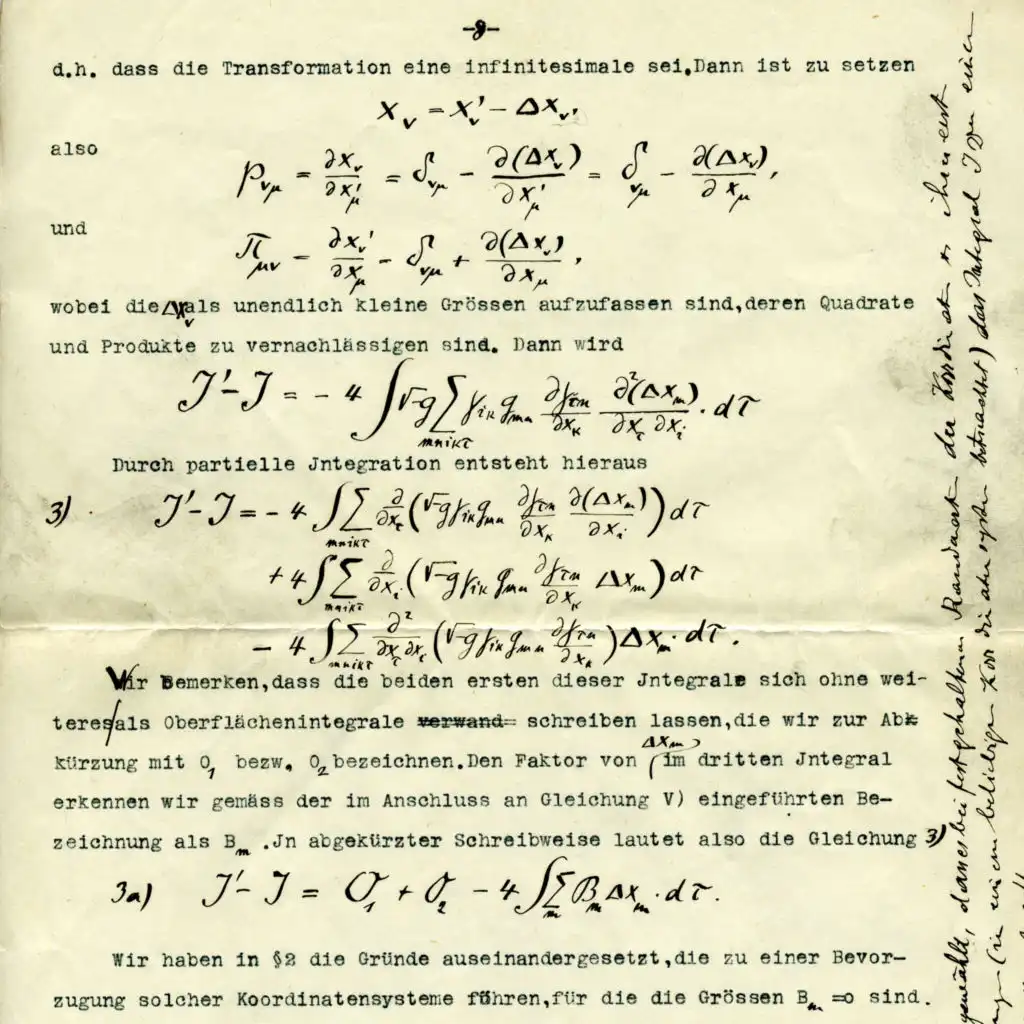 -8-
d.h. dass die Transformation eine infinitesimale sei.Dann ist zu setzen
x_ν = x'_ν − Δx_ν,
also
p_νμ = ∂x_ν/∂x'_μ = δ_νμ − ∂(Δx_ν)/∂x'_μ = δ_νμ − ∂(Δx_ν)/∂x_μ,
und
π_μν = ∂x'_ν/∂x_μ = δ_νμ + ∂(Δx_ν)/∂x_μ,
wobei die Δx_ν als unendlich kleine Grössen aufzufassen sind,deren Quadrate
und Produkte zu vernachlässigen sind. Dann wird
J'− J = − 4 ∫ √−g Σ_mnikτ γ_ik g_mn ∂γ_τn/∂x_κ ∂²(Δx_m)/∂x_τ ∂x_i · dτ
Durch partielle Jntegration entsteht hieraus
3) J'− J = − 4 ∫ Σ_mnikτ ∂/∂x_τ (√−g γ_ik g_mn ∂γ_τn/∂x_κ ∂(Δx_m)/∂x_i) dτ
+ 4 ∫ Σ_mnikτ ∂/∂x_i (√−g γ_ik g_mn ∂γ_τn/∂x_κ Δx_m) dτ
− 4 ∫ Σ_mnikτ ∂²/∂x_τ ∂x_i (√−g γ_ik g_mn ∂γ_τn/∂x_κ) Δx_m · dτ.
Wir Bemerken,dass die beiden ersten dieser Jntegrale sich ohne wei-
teres/als Oberflächenintegrale verwand= schreiben lassen,die wir zur Ab-
kürzung mit O_1 bezw. O_2 bezeichnen.Den Faktor von Δx_m im dritten Jntegral
erkennen wir gemäss der im Anschluss an Gleichung V) eingeführten Be-
zeichnung als B_m .Jn abgekürzter Schreibweise lautet also die Gleichung 3)
3a) J'− J = O_1 + O_2 − 4 ∫ Σ_m B_m Δx_m · dτ.
Wir haben in §2 die Gründe auseinandergesetzt,die zu einer Bevor-
zugung solcher Koordinatensysteme führen,für die die Grössen B_m =0 sind.
gewählt, dass bei festgehaltenen Randwert der Koordinat
beliebige Koordinatensystem betrachtet) das Integral J von einer